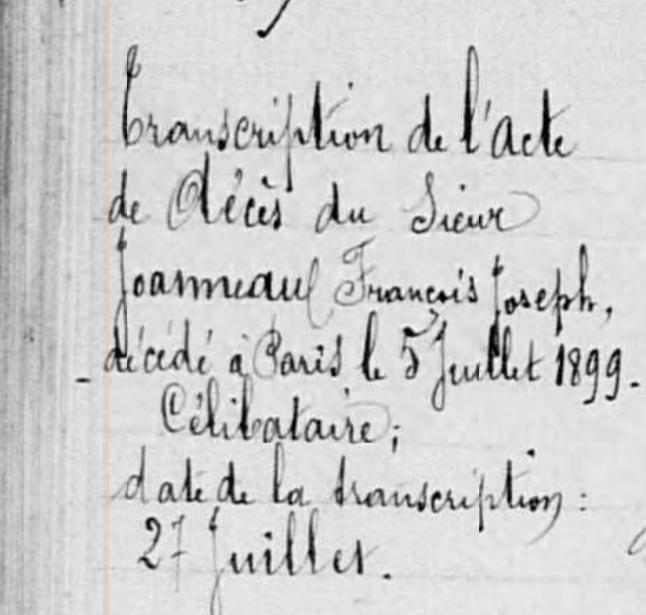 Transcription de l'acte
de Décès du Sieur
Joanneau François Joseph,
décédé à Paris le 5 Juillet 1899.
Célibataire;
date de la transcription :
27 Juillet.